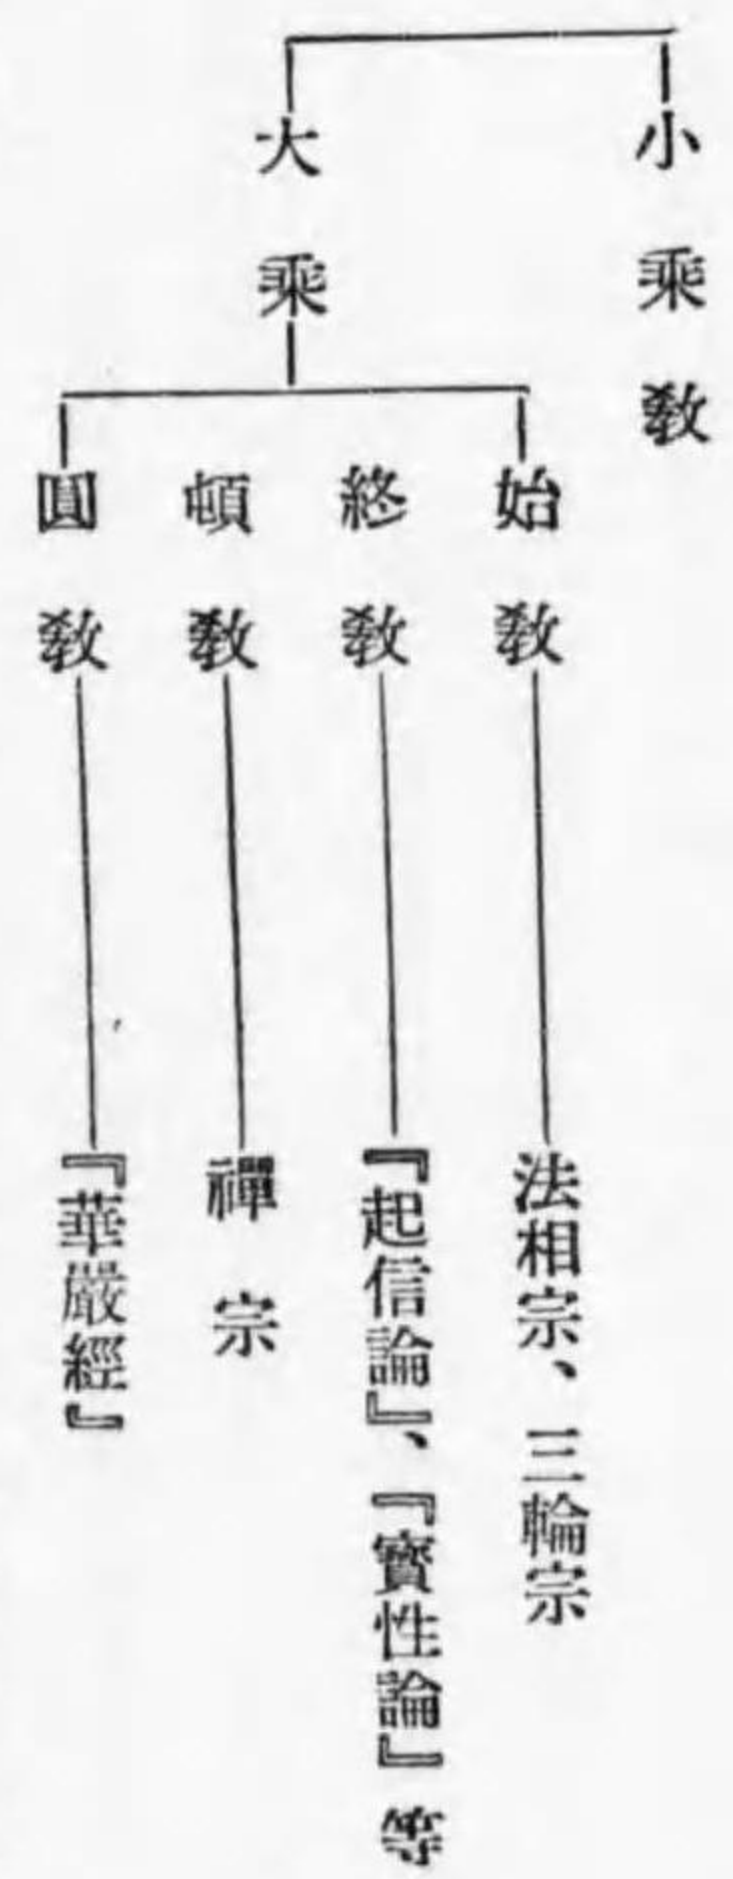 小乘教
大乘
始教
法相宗、三輪宗
終教
『起信論』、『寳性論』等
頓教
禪宗
圓教
『華嚴經』